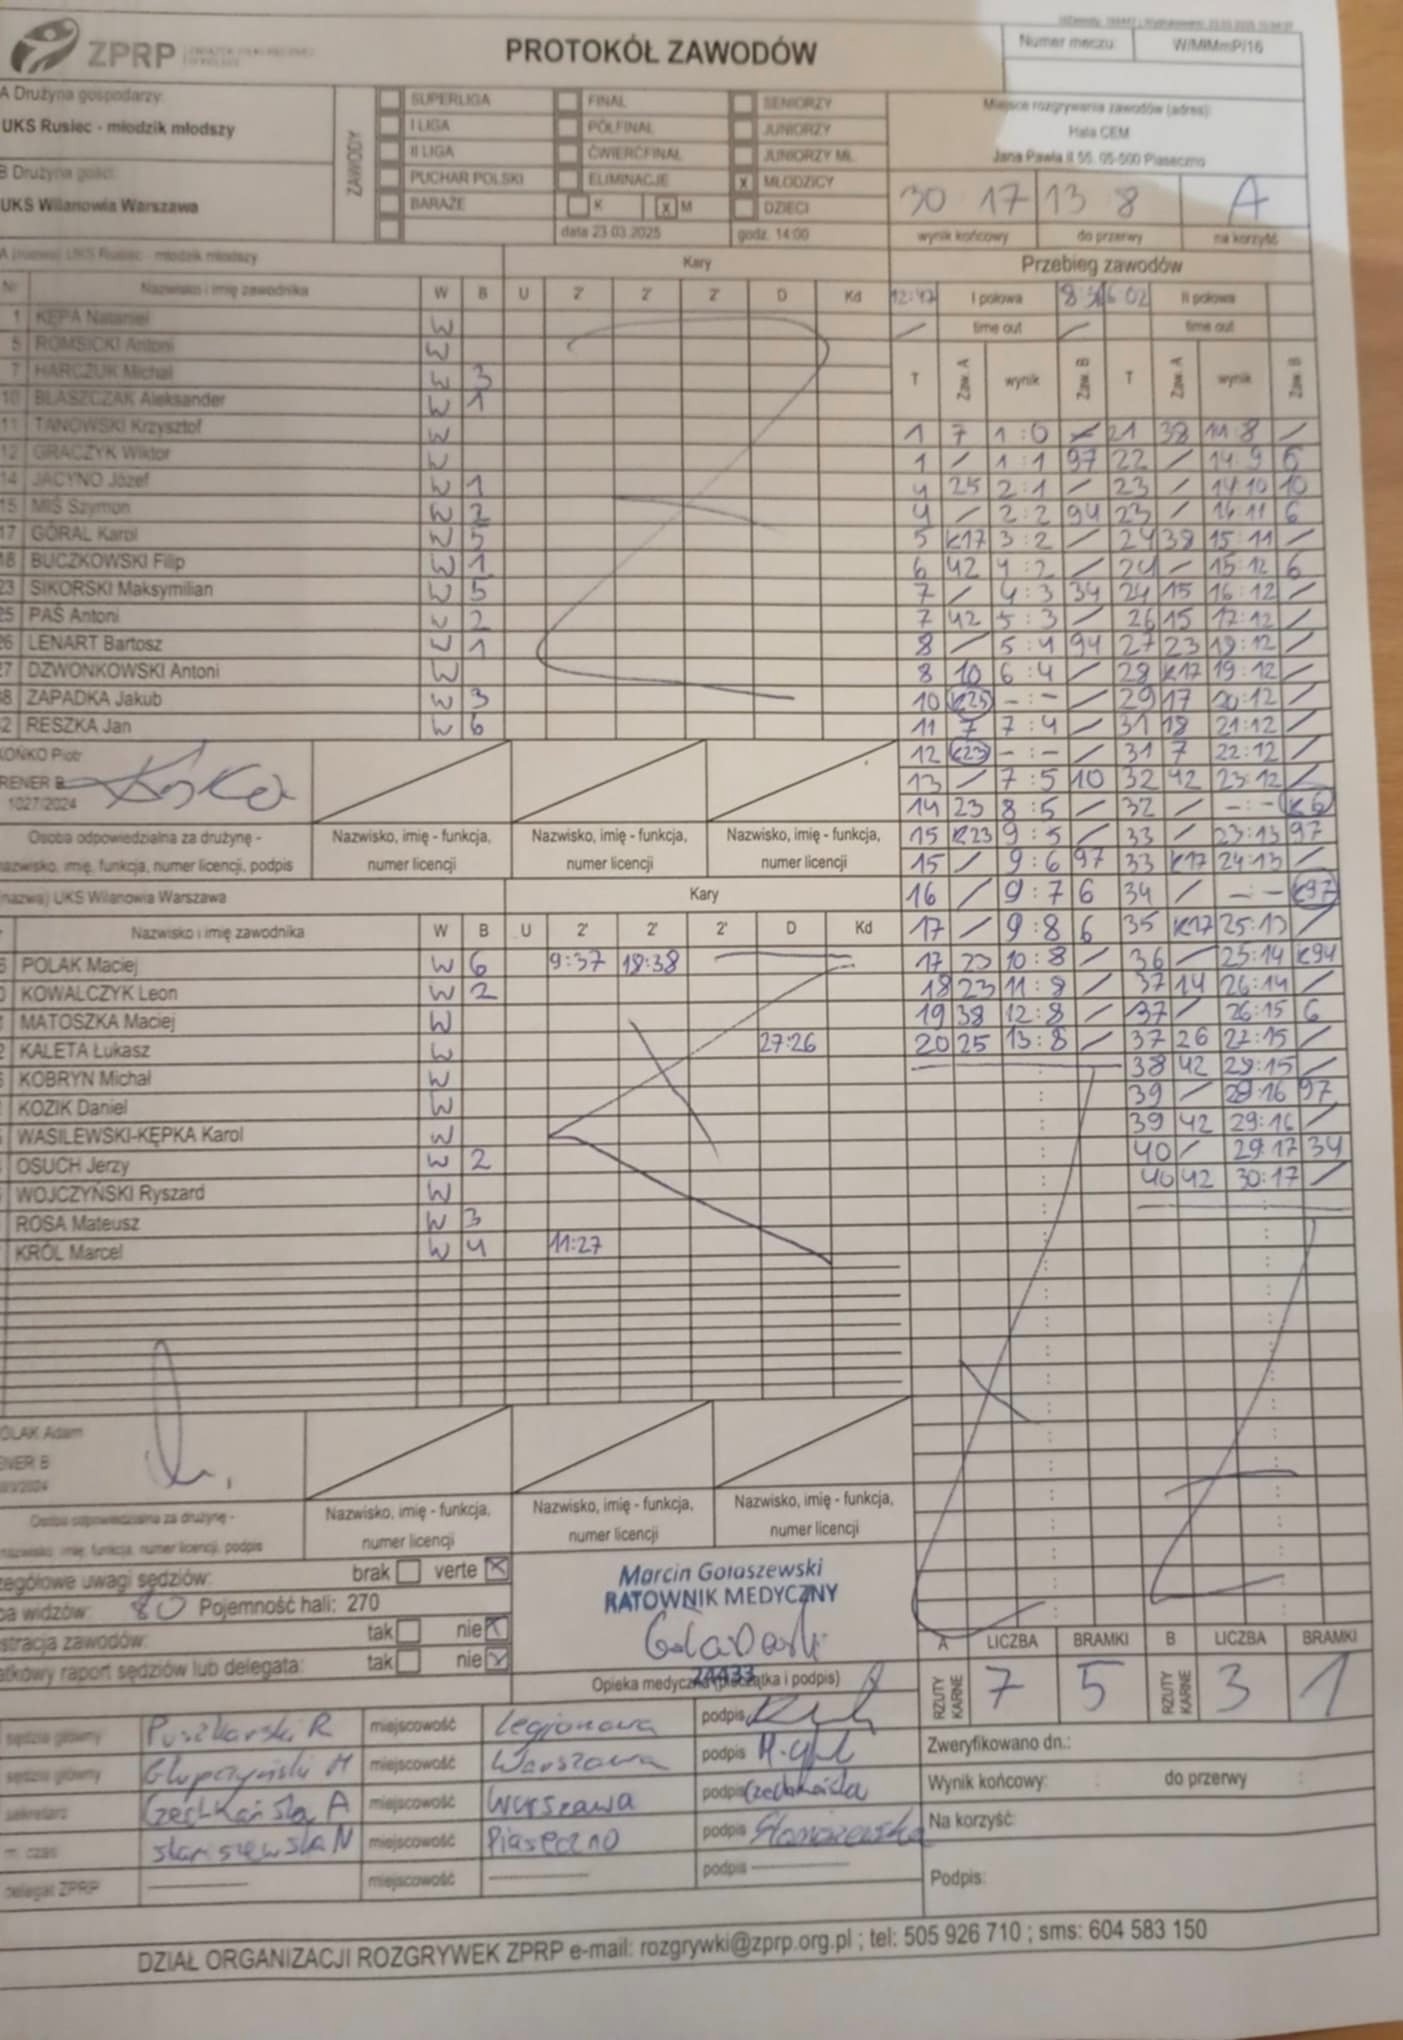 ZPRP
PROTOKÓŁ ZAWODÓW
Numer meczu: W/MłMmP/16
A Drużyna gospodarzy:
UKS Rusiec - młodzik młodszy
B Drużyna gości:
UKS Wilanowia Warszawa
ZAWODY
SUPERLIGA FINAŁ SENIORZY
I LIGA PÓŁFINAŁ JUNIORZY
II LIGA ĆWIERĆFINAŁ JUNIORZY MŁ.
PUCHAR POLSKI ELIMINACJE x MŁODZICY
BARAŻE K x M DZIECI
data 23.03.2025 godz. 14:00
Miejsce rozgrywania zawodów (adres):
Hala CEM
Jana Pawła II 55, 05-500 Piaseczno
30 17 13 8 A
wynik końcowy do przerwy na korzyść
A (nazwa) UKS Rusiec - młodzik młodszy Kary Przebieg zawodów
Nr Nazwisko i imię zawodnika W B U 2' 2' 2' D Kd
1 KĘPA Nataniel W
5 ROMSICKI Antoni W
7 HARCZUK Michał W 3
10 BŁASZCZAK Aleksander W 1
11 TANOWSKI Krzysztof W
12 GRACZYK Wiktor W
14 JACYNO Józef W 1
15 MIŚ Szymon W 2
17 GÓRAL Karol W 5
18 BUCZKOWSKI Filip W 1
23 SIKORSKI Maksymilian W 5
25 PAŚ Antoni W 2
26 LENART Bartosz W 1
27 DZWONKOWSKI Antoni W
38 ZAPADKA Jakub W 3
42 RESZKA Jan W 6
KOŃKO Piotr
TRENER B
1027/2024
Osoba odpowiedzialna za drużynę -
nazwisko, imię, funkcja, numer licencji, podpis
Nazwisko, imię - funkcja,
numer licencji
Nazwisko, imię - funkcja,
numer licencji
Nazwisko, imię - funkcja,
numer licencji
(nazwa) UKS Wilanowia Warszawa Kary
Nazwisko i imię zawodnika W B U 2' 2' 2' D Kd
6 POLAK Maciej W 6 9:37 18:38
KOWALCZYK Leon W 2
MATOSZKA Maciej W
KALETA Łukasz W 27:26
KOBRYN Michał W
KOZIK Daniel W
WASILEWSKI-KĘPKA Karol W
OSUCH Jerzy W 2
WOJCZYŃSKI Ryszard W
ROSA Mateusz W 3
KRÓL Marcel W 4 11:27
POLAK Adam
TRENER B
Osoba odpowiedzialna za drużynę -
nazwisko, imię, funkcja, numer licencji, podpis
Nazwisko, imię - funkcja,
numer licencji
Nazwisko, imię - funkcja,
numer licencji
Nazwisko, imię - funkcja,
numer licencji
12:47 I połowa 8:36 6:02 II połowa
time out time out
T Zaw. A wynik Zaw. B T Zaw. A wynik Zaw. B
1 7 1:0 / 21 38 14:8 /
1 / 1:1 97 22 / 14:9 6
4 25 2:1 / 23 / 14:10 10
4 / 2:2 94 23 / 14:11 6
5 K17 3:2 / 24 38 15:11 /
6 42 4:2 / 24 / 15:12 6
7 / 4:3 34 24 15 16:12 /
7 42 5:3 / 26 15 17:12 /
8 / 5:4 94 27 23 18:12 /
8 10 6:4 / 28 K17 19:12 /
10 K25 -:- / 29 17 20:12 /
11 7 7:4 / 31 18 21:12 /
12 K23 -:- / 31 7 22:12 /
13 / 7:5 10 32 42 23:12 /
14 23 8:5 / 32 / -:- K6
15 K23 9:5 / 33 / 23:13 97
15 / 9:6 97 33 K17 24:13 /
16 / 9:7 6 34 / -:- K97
17 / 9:8 6 35 K17 25:13 /
17 23 10:8 / 36 / 25:14 K94
18 23 11:8 / 37 14 26:14 /
19 38 12:8 / 37 / 26:15 6
20 25 13:8 / 37 26 27:15 /
38 42 28:15 /
39 / 28:16 97
39 42 29:16 /
40 / 29:17 34
40 42 30:17 /
Szczegółowe uwagi sędziów: brak verte x
Liczba widzów: 80 Pojemność hali: 270
Rejestracja zawodów: tak nie x
Dodatkowy raport sędziów lub delegata: tak nie x
Marcin Gołaszewski
RATOWNIK MEDYCZNY
24433
Opieka medyczna (pieczątka i podpis)
A LICZBA BRAMKI B LICZBA BRAMKI
RZUTY KARNE 7 5 RZUTY KARNE 3 1
sędzia główny Puszkarski R miejscowość Legionowo podpis
sędzia główny Głupczyński M miejscowość Warszawa podpis
sekretarz Czechkańska A miejscowość Warszawa podpis
m. czas Staniszewska N miejscowość Piaseczno podpis Staniszewska
delegat ZPRP miejscowość podpis
Zweryfikowano dn.:
Wynik końcowy: : do przerwy :
Na korzyść:
Podpis:
DZIAŁ ORGANIZACJI ROZGRYWEK ZPRP e-mail: rozgrywki@zprp.org.pl ; tel: 505 926 710 ; sms: 604 583 150